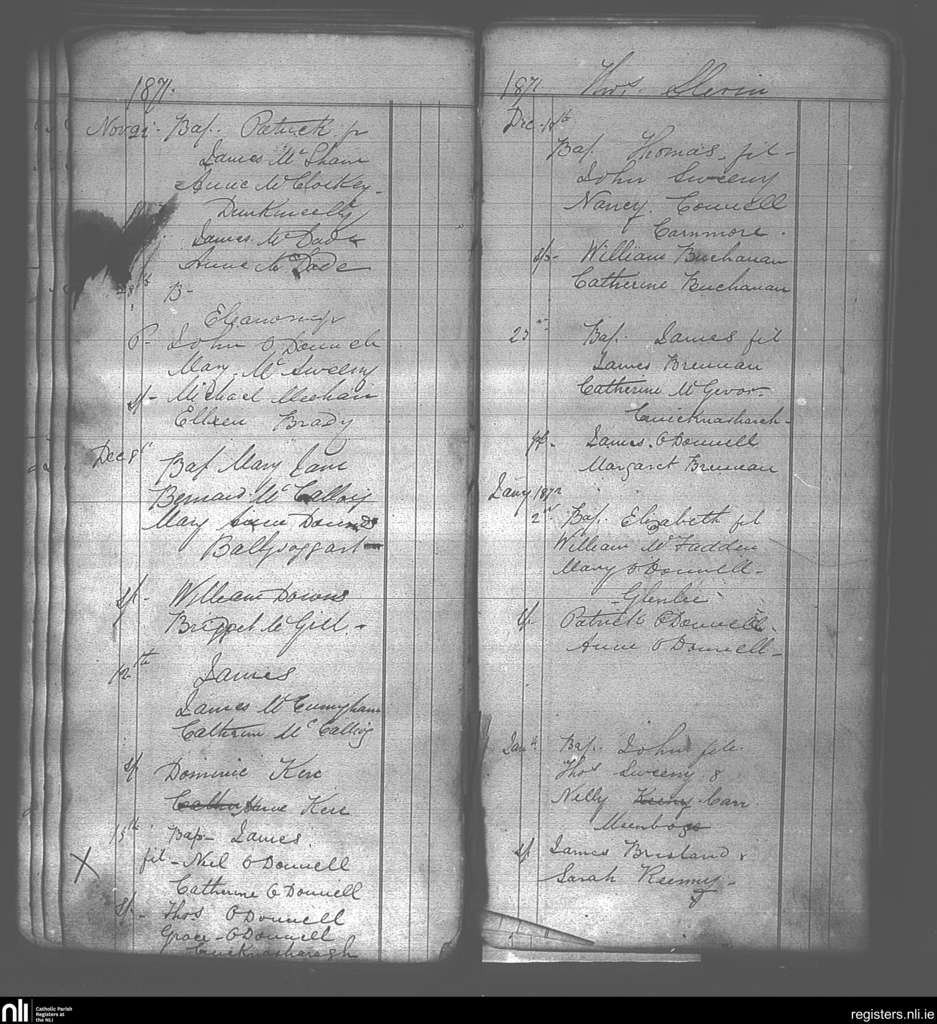 1871.
Nov 22 - Bap. Patrick
James McShane
Anne McCloskey -
Dunkineely
James McDade
Anne McDade
28th B-
Eleanor
P- John O Donnell
Mary McSweeny
sp- Michael Meehan
Elleen Brady
Dec 8th
Bap Mary Jane
Bernard McCallvig
Mary Anne Downds
Ballysoggart
sp- William Downs
Bridget McGill -
12th James
James McCunigham
Cathrin McCallvig
sp Dominic Kerr
Anne Kerr
15th Bap- James
X fil- Neil O Donnell
Catherine O Donnell
sp- Thos O Donnell
Grace - O Donnell
1871 Thos. Slevin
Dec - 18th
Bap. Thomas fil -
John Sweeny
Nancy Connell
Carnmore.
sp- William Buchanan
Catherine Buchanan
25 Bap. James fil
James Brennan
Catherine McGivor -
sp- James O Donnell
Margaret Brennan
Jany 1872
2nd Bap. Elizabeth fil
William McFadden
Mary O Donnell -
Glenlee
sp Patrick O Donnell -
Anne O Donnell -
Jan Bap. John fil
Thos Sweeny &
Nelly Carr
sp James Brisland &
Sarah
nli
Catholic Parish
Registers at
the NLI
registers.nli.ie